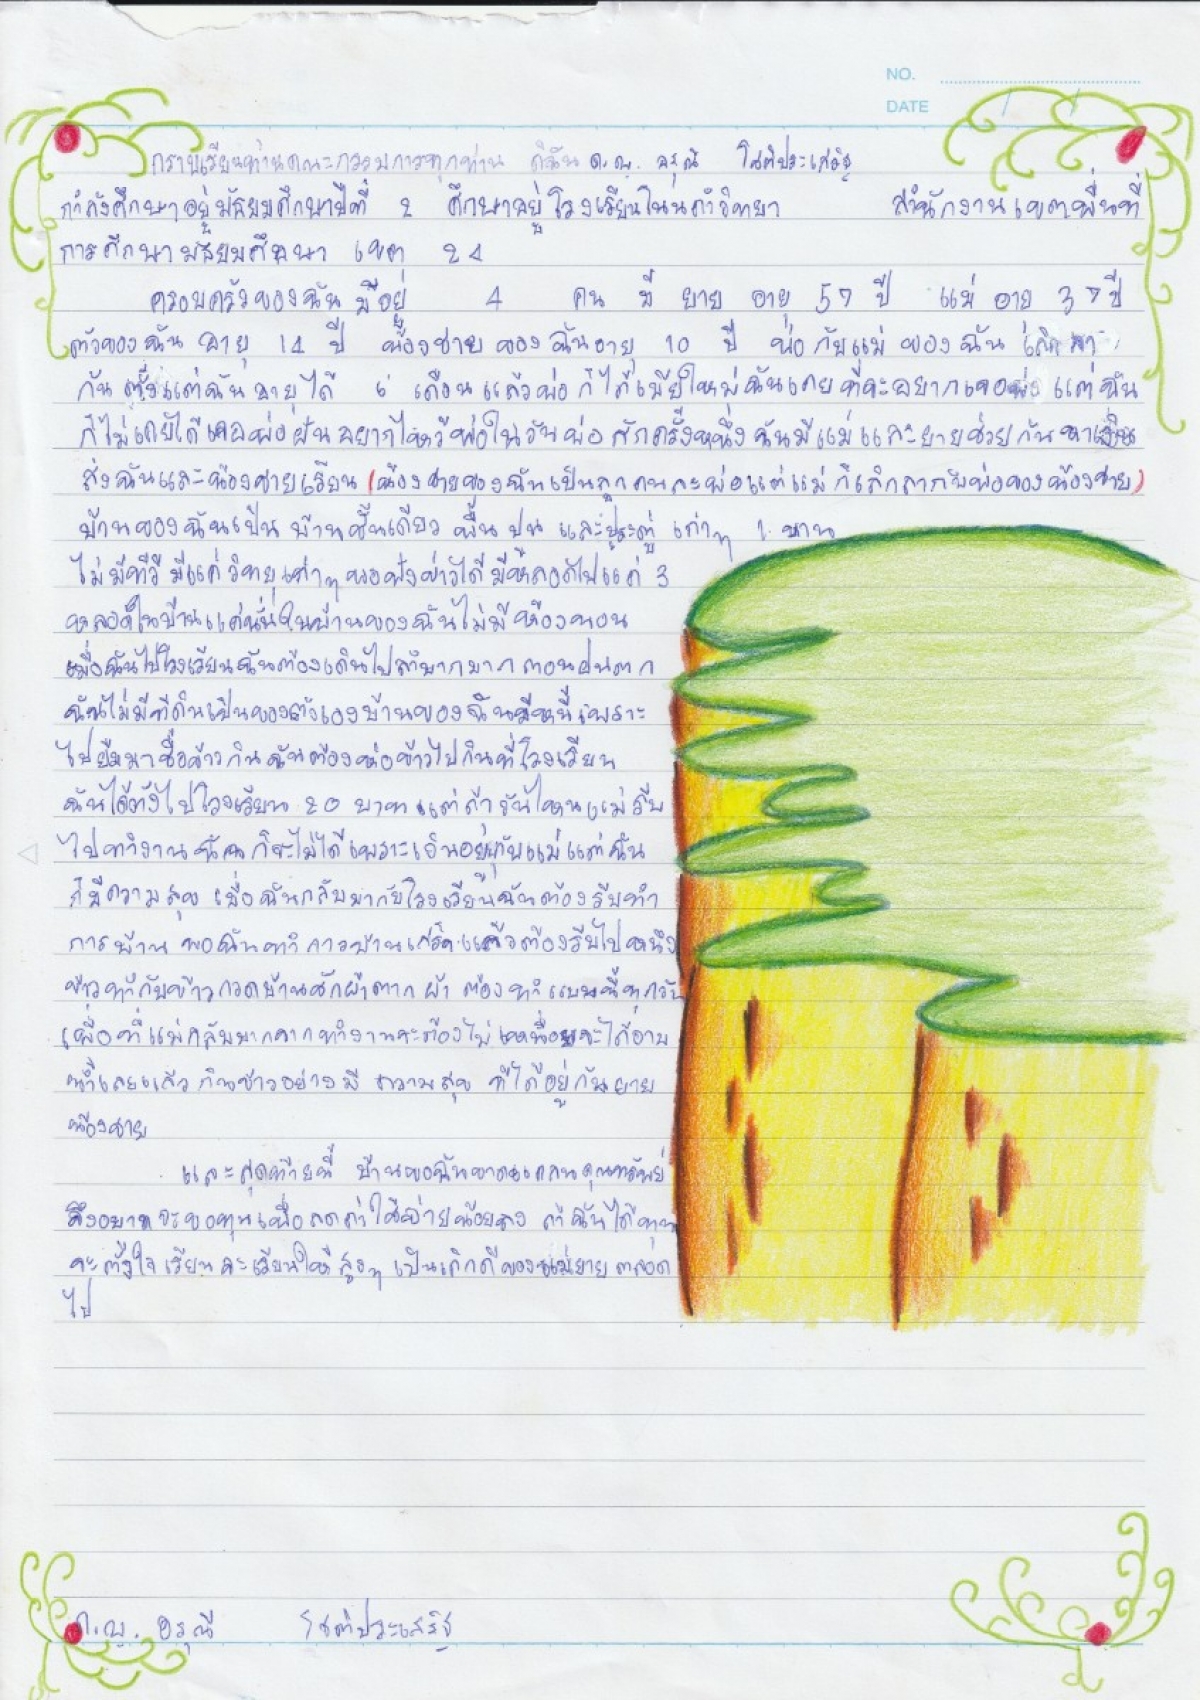 NO.
DATE
กราบเรียนท่านคณะกรรมการทุกท่าน ดิฉัน ด.ญ. อรุณี โชติประเสริฐ
กำลังศึกษาอยู่มัธยมศึกษาปีที่ 2 ศึกษาอยู่โรงเรียนในนคำวิทยา สำนักงานเขตพื่นที่
การศึกษามัธยมศึกษา เขต 24
ครอบครัวของฉัน มีอยู่ 4 คน มี ยาย อายุ 57 ปี แม่ อาย 37 ปี
ตัวของฉัน อายุ 14 ปี น้องชายของฉันอายุ 10 ปี พ่อกับแม่ ของฉัน
กัน ตั้งแต่ฉันอายุได้ 6 เดือนแล้วพ่อก็ได้เมียใหม่ฉันเคยที่จะอยากเจอพ่อ แต่ฉัน
ก็ไม่เคยได้เจอพ่อฝันอยากไหว้พ่อในวันพ่อสักครั้งหนึ่งฉันมีแม่และยายช่วยกันหาเงิน
ส่งฉันและน้องชายเรียน (น้องชายของฉันเป็นลูกคนละพ่อแต่แม่ก็เลิกลากับพ่อของน้องชาย)
บ้านของฉันเป็นบ้านชั้นเดียว พื้นปูน และประตู เก่าๆ 1 บาน
ไม่มีทีวี มีแต่วิทยุเก่าๆพอฟังข่าวได้มีหลอดไฟแค่ 3
หลอดในบ้านแค่นั้นในบ้านของฉันไม่มีห้องนอน
เมื่อฉันไปโรงเรียนฉันต้องเดินไปลำบากมาก ตอนฝนตก
ฉันไม่มีที่ดินเป็นของตัวเองบ้านของฉันมีหนี้เพราะ
ไปยืมมาซื้อข้าวกินฉันต้องห่อข้าวไปกินที่โรงเรียน
ฉันได้ตังไปโรงเรียน 20 บาทแต่ถ้าวันไหนแม่รีบ
ไปทำงานฉันก็จะไม่ได้เพราะเงินอยู่กับแม่แต่ฉัน
ก็มีความสุข เมื่อฉันกลับมากับโรงเรียนฉันต้องรีบทำ
การบ้าน พอฉันทำการบ้านเสร็จแล้วต้องรีบไปหนึ่ง
ข้าวทำกับข้าวกวดบ้านซักผ้าตากผ้า ต้องทำแบบนี้ทุกวัน
เพื่อที่แม่กลับมาจากทำงานจะต้องไม่เหนื่อยจะได้อาบ
น้ำเลยแล้วกินข้าวอย่างมี ความสุข ที่ได้อยู่กันยาย
น้องชาย
และสุดท้ายนี้ บ้านของฉันขาดแคลนคุณทรัพย์
จึงอยากจะขอทุนเพื่อลดค่าใช้จ่ายน้อยลง ถ้าฉันได้ทุน
จะตั้งใจเรียนจะเรียนให้สูงๆ เป็นเด็กดีของแม่ยายตลอด
ไป
ด.ญ. อรุณี โชติประเสริฐ